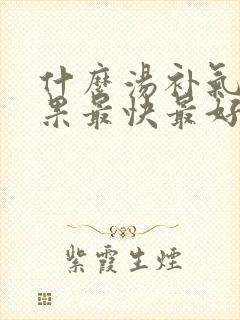 什麼湯补氣
果最快最好
紫霞生煙